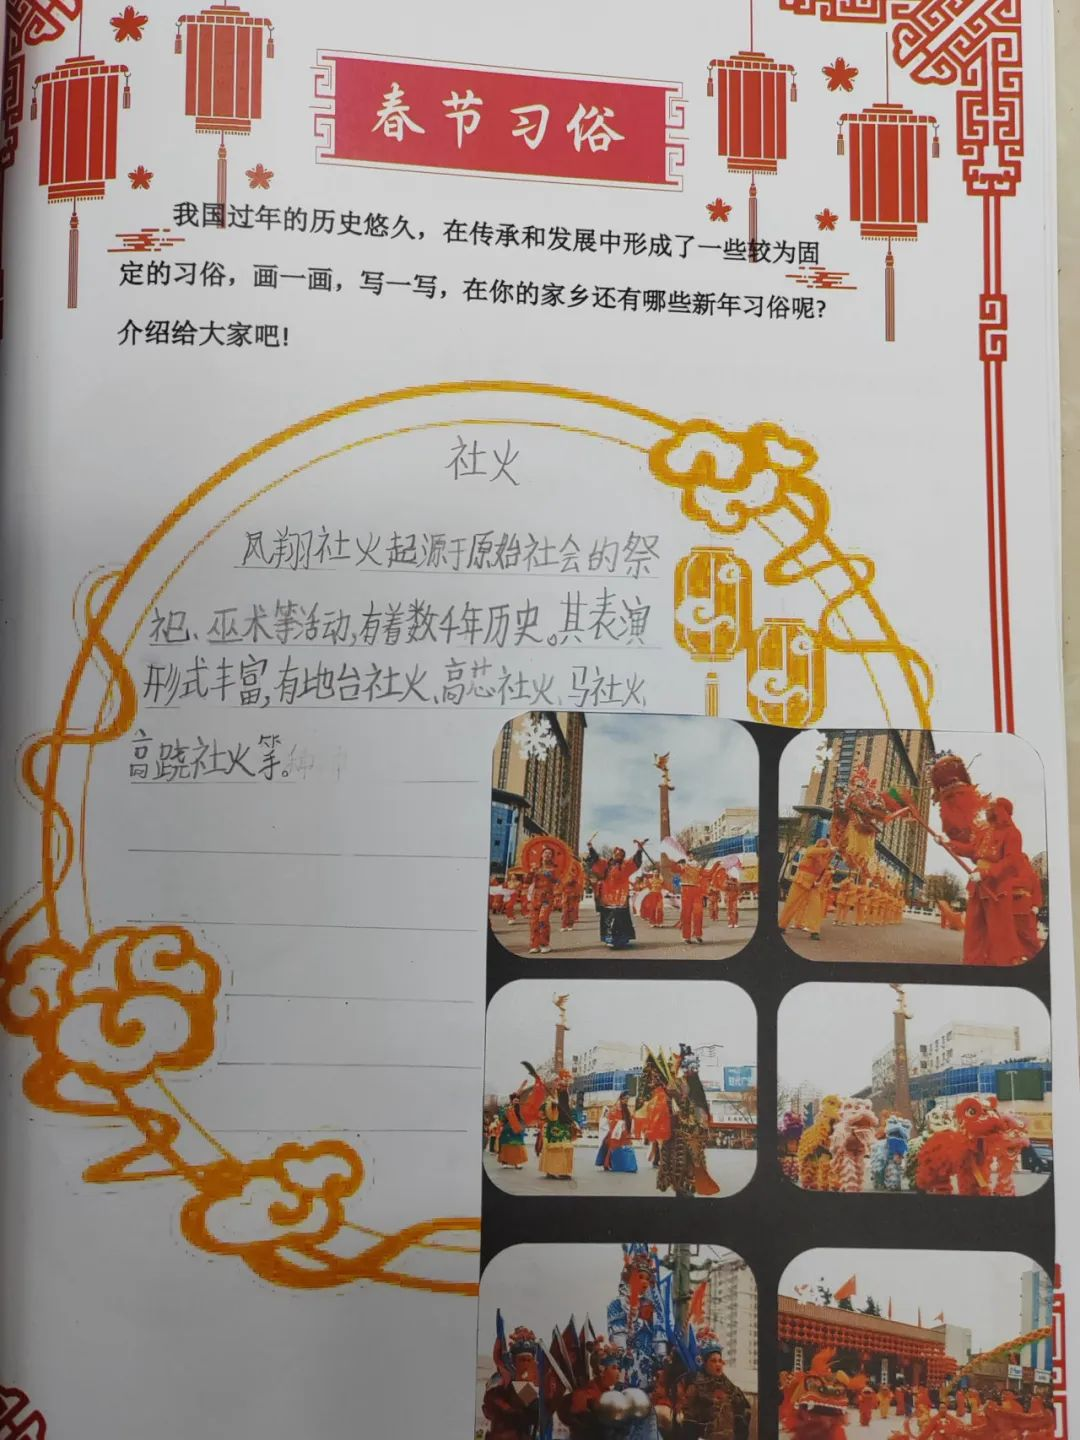 春节习俗
我国过年的历史悠久，在传承和发展中形成了一些较为固
定的习俗，画一画，写一写，在你的家乡还有哪些新年习俗呢？
介绍给大家吧！
社火
凤翔社火起源于原始社会的祭
祀、巫术等活动,有着数千年历史。其表演
形式丰富,有地台社火、高芯社火、马社火、
高跷社火等。